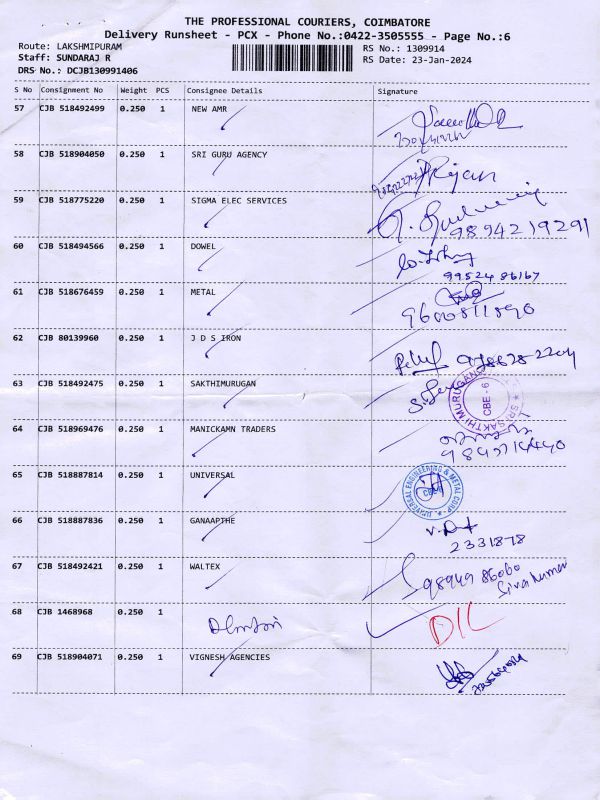 THE PROFESSIONAL COURIERS, COIMBATORE
Delivery Runsheet - PCX - Phone No.:0422-3505555 - Page No.:6
Route: LAKSHMIPURAM RS No.: 1309914
Staff: SUNDARAJ R RS Date: 23-Jan-2024
DRS No.: DCJB130991406
S No Consignment No Weight PCS Consignee Details Signature
57 CJB 518492499 0.250 1 NEW AMR
58 CJB 518904050 0.250 1 SRI GURU AGENCY Rajan
59 CJB 518775220 0.250 1 SIGMA ELEC SERVICES
9894219291
60 CJB 518494566 0.250 1 DOWEL
9952486167
61 CJB 518676459 0.250 1 METAL
9680811890
62 CJB 80139960 0.250 1 J D S IRON
63 CJB 518492475 0.250 1 SAKTHIMURUGAN
SRI SAKTHI MURUGAN
CBE - 6
64 CJB 518969476 0.250 1 MANICKAMN TRADERS
65 CJB 518887814 0.250 1 UNIVERSAL
UNIVERSAL ENGINEERING & METAL CORP.
66 CJB 518887836 0.250 1 GANAAPTHE
2331878
67 CJB 518492421 0.250 1 WALTEX 98949 86060
Sivakumar
68 CJB 1468968 0.250 1 D/L
69 CJB 518904071 0.250 1 VIGNESH AGENCIES